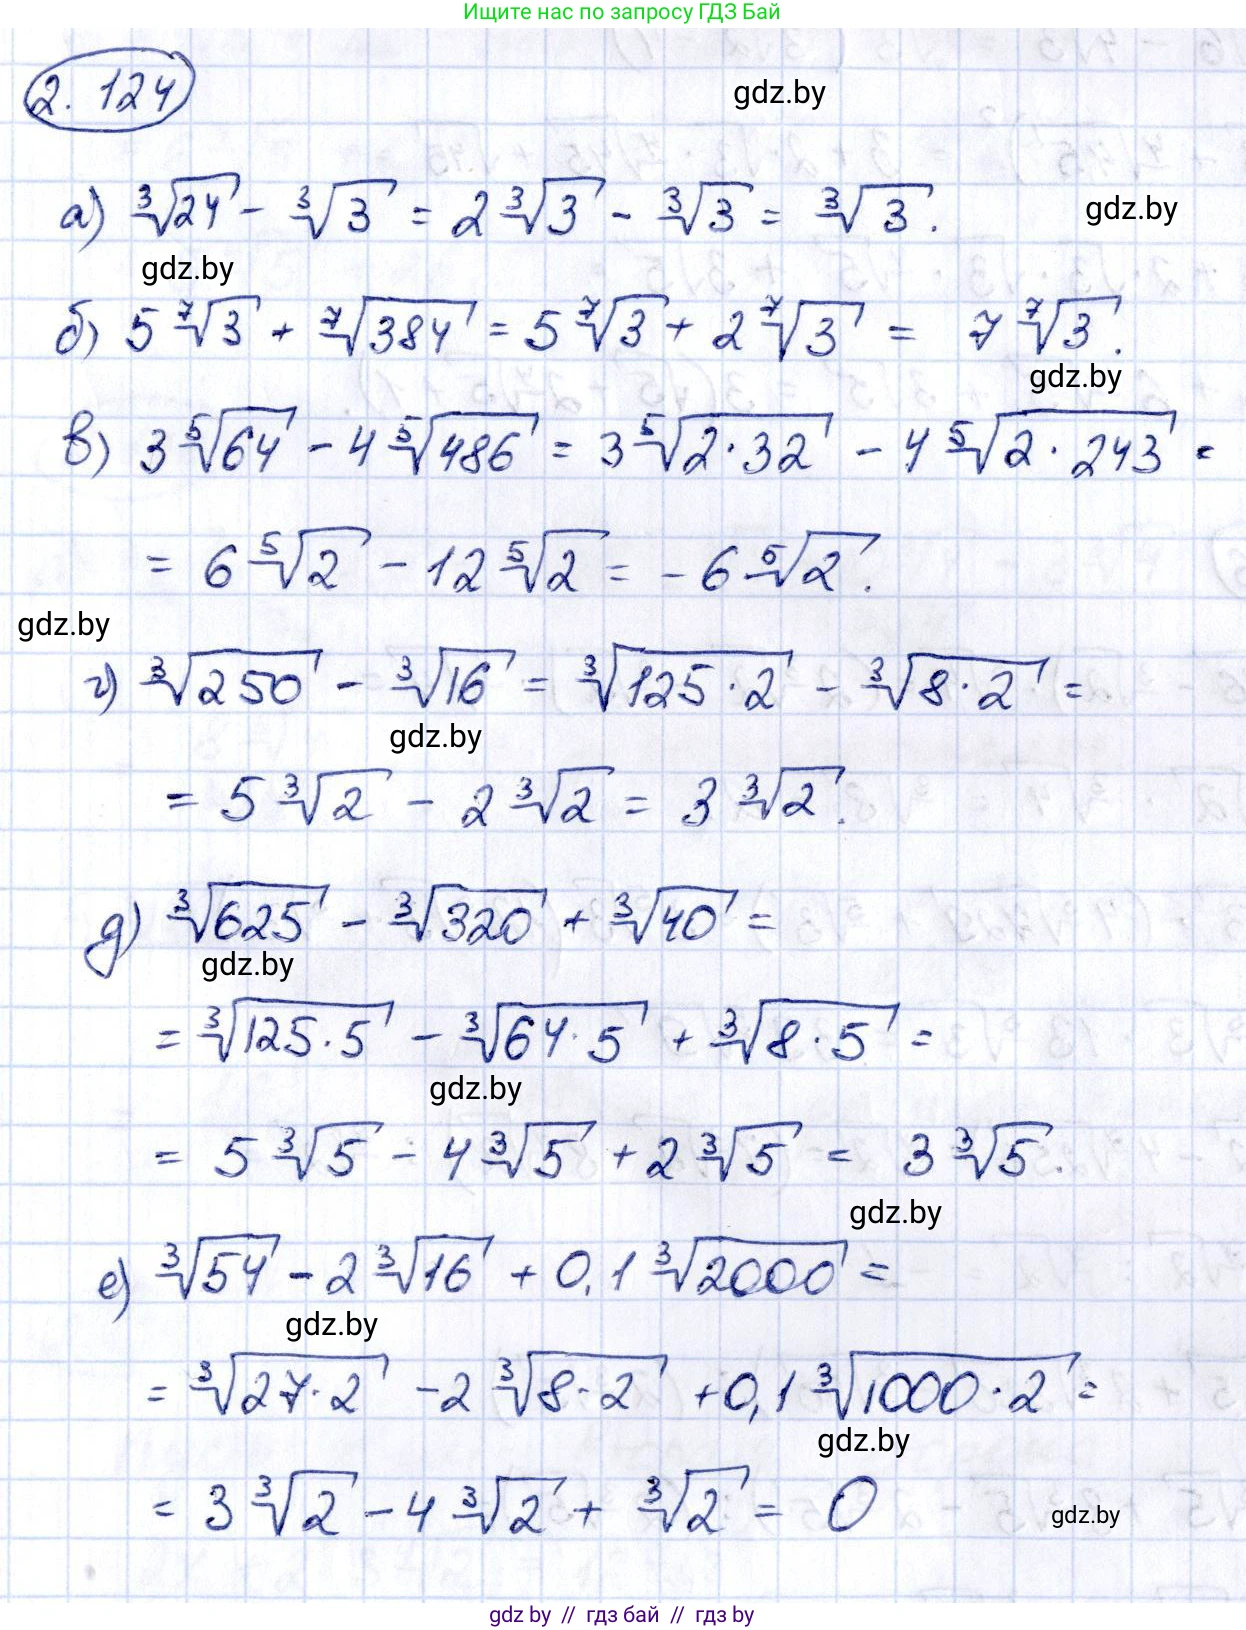 Ищите нас по запросу ГДЗ Бай
2. 124
gdz.by
а) ∛24 - ∛3 = 2∛3 - ∛3 = ∛3.
gdz.by
gdz.by
б) 5 ⁷√3 + ⁷√384 = 5 ⁷√3 + 2 ⁷√3 = 7 ⁷√3.
gdz.by
в) 3 ⁵√64 - 4 ⁵√486 = 3 ⁵√(2·32) - 4 ⁵√(2·243) =
= 6 ⁵√2 - 12 ⁵√2 = -6 ⁵√2.
gdz.by
г) ∛250 - ∛16 = ∛(125·2) - ∛(8·2) =
gdz.by
= 5∛2 - 2∛2 = 3∛2.
д) ∛625 - ∛320 + ∛40 =
gdz.by
= ∛(125·5) - ∛(64·5) + ∛(8·5) =
gdz.by
= 5∛5 - 4∛5 + 2∛5 = 3∛5.
gdz.by
е) ∛54 - 2∛16 + 0,1∛2000 =
gdz.by
= ∛(27·2) - 2∛(8·2) + 0,1∛(1000·2) =
gdz.by
= 3∛2 - 4∛2 + ∛2 = 0
gdz.by
gdz by // гдз бай // гдз by